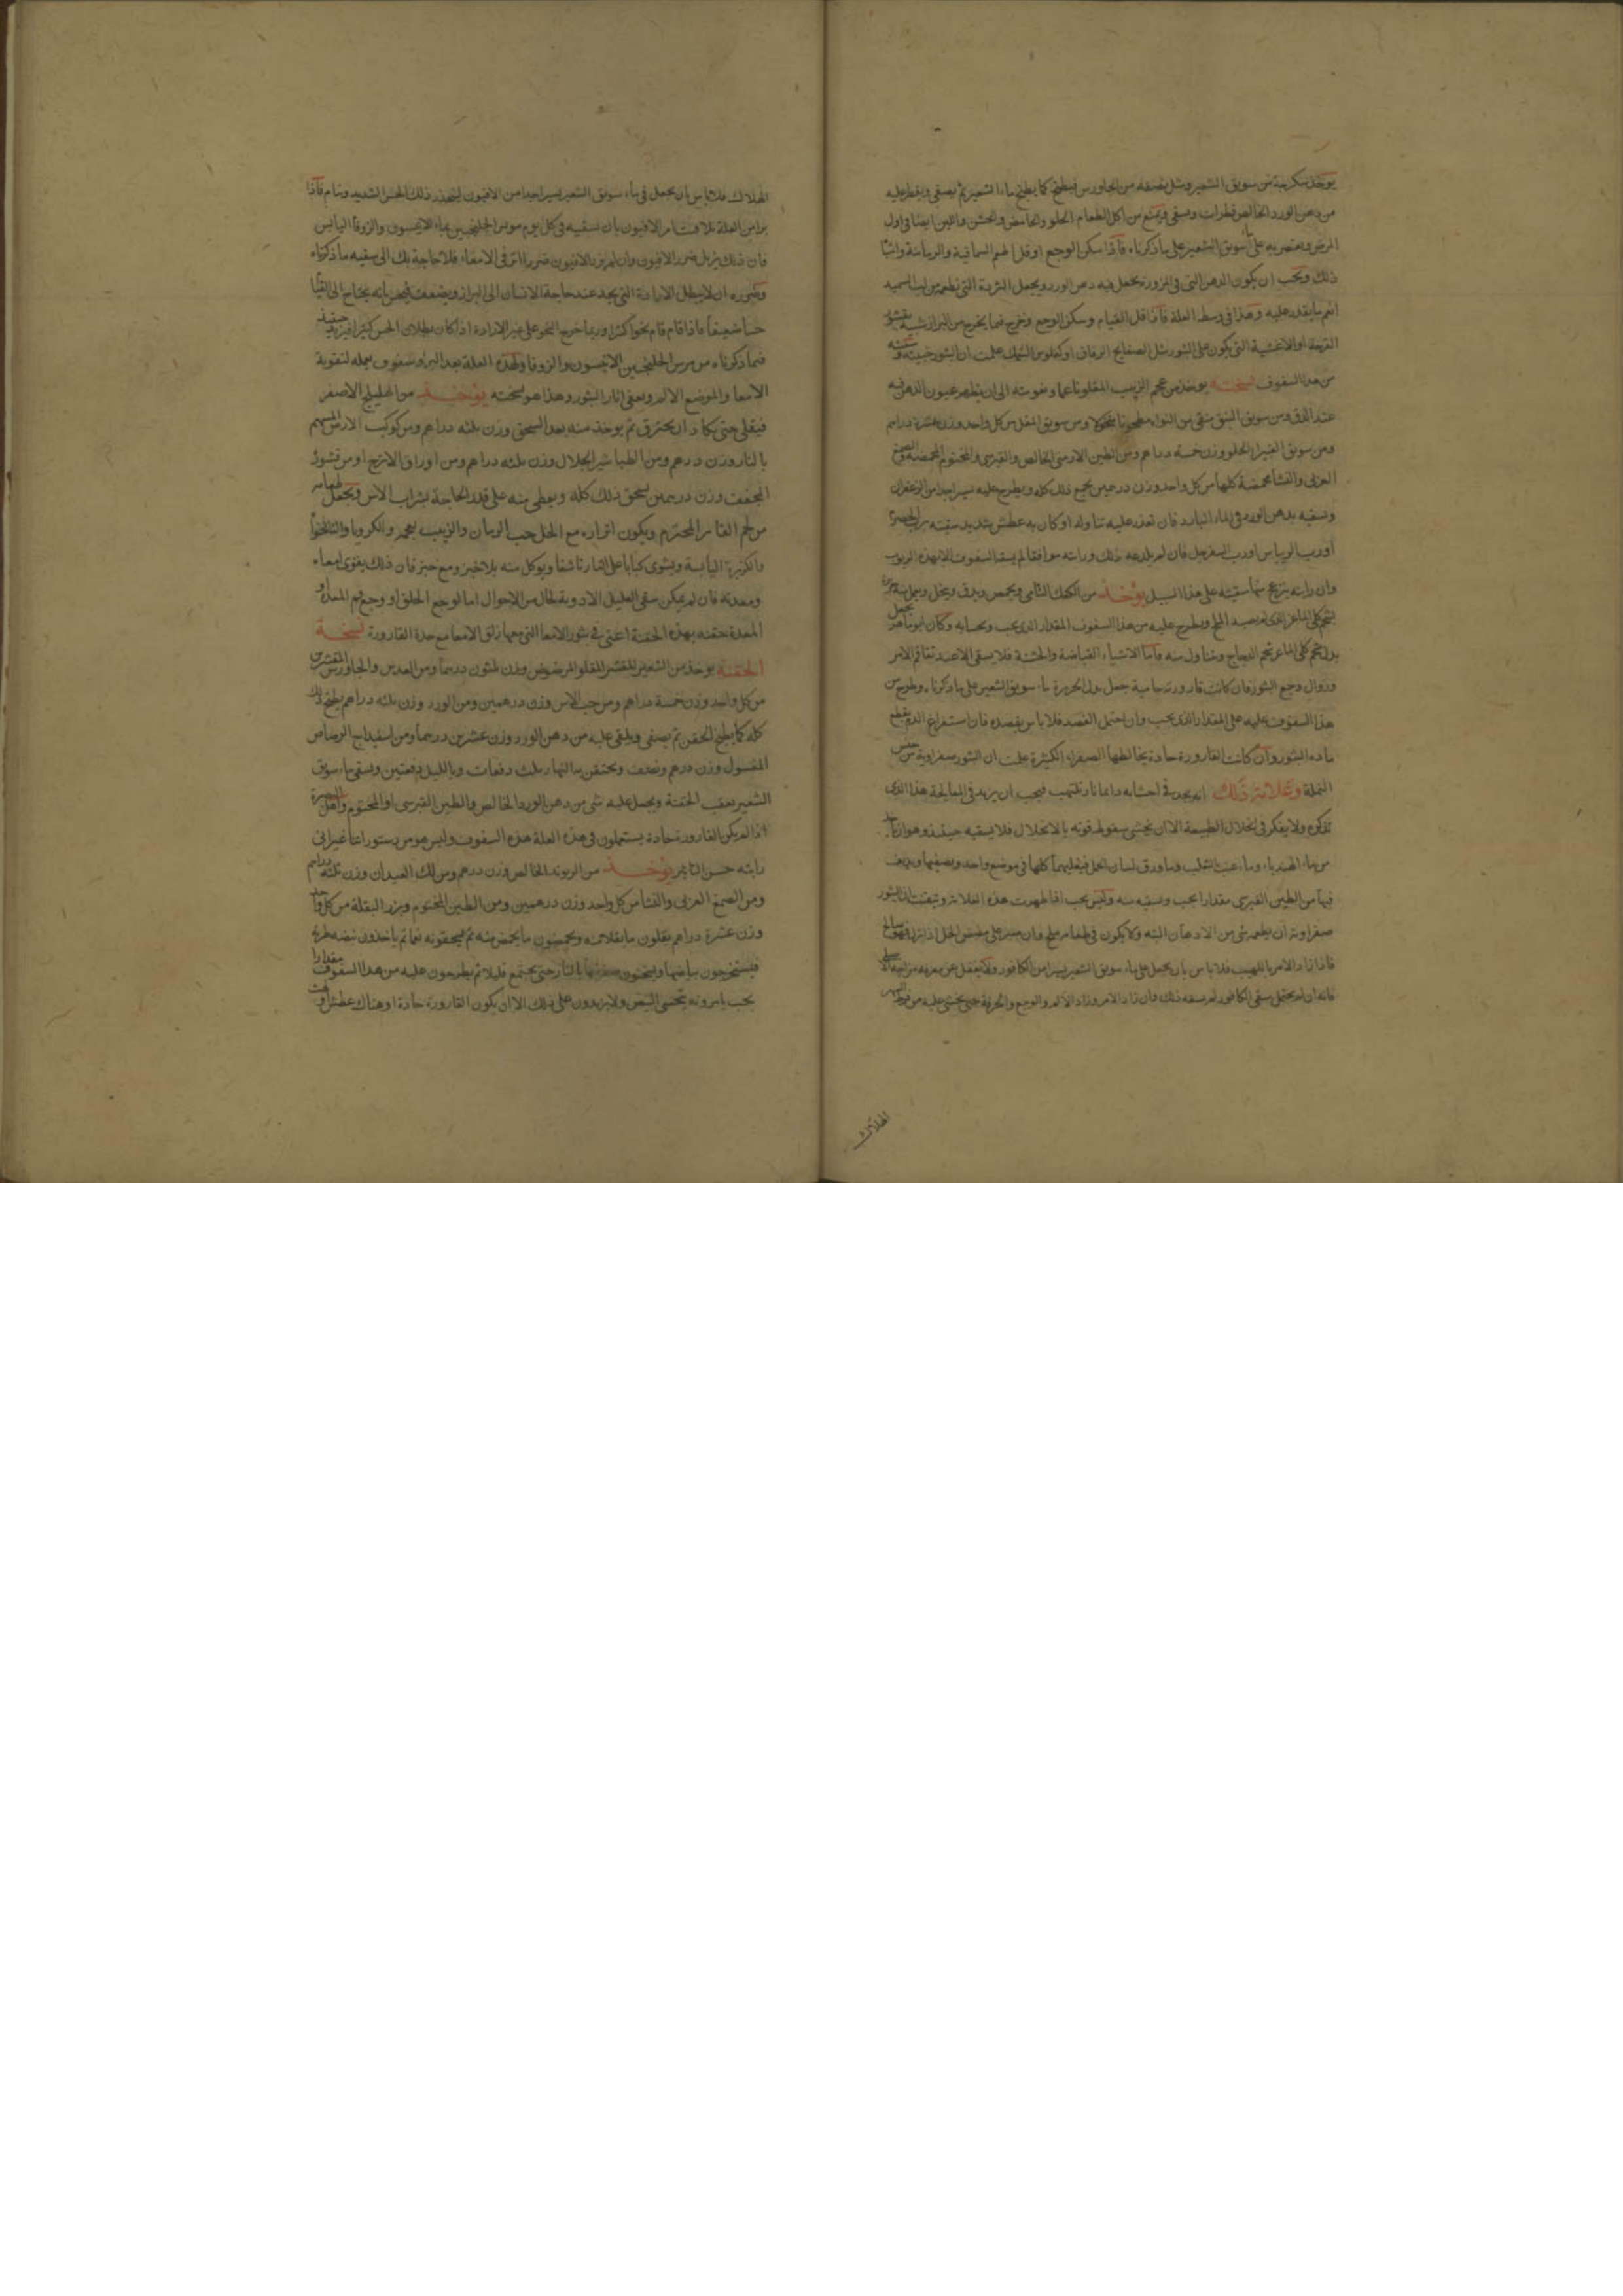 يوخذ سكرجة من سويق الشعير ومثل نصفه من الجاورس فيطبخ كما يطبخ ماء الشعير ثم يصفى ويقطر عليه
من دهن الورد الخالص قطرات ويسقى ويمنع من اكل الطعام الحلو والحامض والخشن واللبن ايضا في اول
المرض ويقتصر به على ماء سويق الشعير على ما ذكرناه فاذا سكن الوجع او قل اطعم السماقية والرمانية واشباه
ذلك ويجب ان يكون الدهن التى فى المزورة يجعل فيه دهن الورد ويجعل الثردة التى تطعمه من لب السميد
انعم ما يقدر عليه وهذا فى وسط العلة فاذا قل القيام وسكن الوجع وخرج فيما يخرج من البراز شبيه بقشور
القرحة او الاغشية التى يكون على البثور مثل الصفايح الرقاق او كفلوس السمك علمت ان البثور خبيثة وسقيته
من هذا السفوف نسخته يوخذ من عجم الزبيب المقلو ناعما وخموسته الى ان يظهر عيون الدهن فيه
عند الدق ومن سويق النبق منقى من النواء مطحونا منخولا ومن سويق المقل من كل واحد وزن عشرة دراهم
ومن سويق الغبيرا الحلو وزن خمسة دراهم ومن الطين الارمنى الخالص والقبرسى والمختوم المحمصة والصمغ
العربى والنشا محمصة كلها من كل واحد وزن درهمين يجمع ذلك كله ويطرح عليه يسير احدا من الزعفران
وتسقيه بدهن الورد فى الماء البارد فان تعذر عليه تناوله او كان به عطش شديد سقيته برب الحصرم
او رب الريباس او رب السفرجل فان لم يلدعه ذلك ورايته موافقا لم يسقه السفوف الا بهذه الربوب
وان رايته ينزعج منها سقيته على هذا السبيل يوخذ من الكعك الشامى ويحمص ويدق وينخل ويعمل منه حريرة
بشحم كلى الماعز الذى لم يصبه الملح ويطرح عليه من هذا السفوف المقدار الذى يجب ويحسا به وكان ابو ماهر يجعل
بدل شحم كلى الماعز شحم الدجاج ويتناول منه فاما الاشياء القباضة والخشنة فلا يسقى الا عند تفاقم الامر
وزوال وجع البثور فان كانت قارورته حامية جعل بدل الحريرة ماء سويق الشعير على ما ذكرناه ويطرح من
هذا السفوف عليه على المقدار الذى يجب وان احتمل الفصد فلا باس بفصده فان استفراغ الدم يقطع
مادة البثور وان كانت القارورة حادة يخالطها الصفراء الكثيرة علمت ان البثور صفراوية من جنس
النملة وعلامة ذلك انه يجد فى احشايه دايما نار تلتهب فيجب ان يزيد فى المعالجة هذا الذى
نذكره ولا يفكر فى انحلال الطبيعة الا ان يخشى سقوط قوته بالانحلال فلا يسقيه حينئذ وهو ان ياخذ
من ماء الهندباء وماء عنب الثعلب وماء ورق لسان الحمل فيغليهما كلها فى موضع واحد ويصفيها ويديف
فيها من الطين القبرسى مقدارا يجب وتسقيه منه وليس يجب اذا ظهرت هذه العلامة وتيقنت ان البثور
صفراوية ان يطعمه شى من الادهان البتة ولا يكون فى طعامه ملح وان صبر على مضض الخل اذا برد فهو صالح
فاذا زاد الامر بالتلهيب فلا باس بان يجعل على ماء سويق الشعير يسيرا من الكافور ولا يغفل عن معرفة مزاجه الاصلى
فانه ان لم يحتمل سقى الكافور لم يسقه ذلك وان زاد الامر وزاد الالم والوجع والحرقة حتى يخشى عليه من السهر
الهلاك
الهلاك فلا باس بان يجعل فى ماء سويق الشعير يسير احدا من الافيون ليتخدر ذلك الحس الشديد وينام فاذا
برا من العلة تلافيت امر الافيون بان تسقيه فى كل يوم مرس الجلنجبين بماء الانيسون والزوفا اليابس
فان ذلك يزيل ضرر الافيون وان لم يزد الافيون ضررا اثر فى الامعاء فلا حاجة بك الى سقيه ما ذكرناه
وضرره ان لا يبطل الارادة التى يجد عند حاجة الانسان الى البراز ويضعف فيحس بانه يحتاج الى القيام
حسا ضعيفا فاذا قام قام نجوا كثيرا وربما خرج النجو على غير الارادة اذا كان بطلان الحس كثيرا فيزيد حينئذ
فيما ذكرناه من مرس الجلنجبين الانيسون والزوفا ولهذه العلة بعد البرء سفوف نعمله لتقوية
الامعا والموضع الالم ويعفى اثار البثور وهذا هو نسخته يوخذ من الهليلج الاصفر
فيقلى حتى يكاد ان يحترق ثم يوخذ منه بعد السحق وزن ثلثه دراهم ومن كوكب الارض المسهم
بالنار وزن درهم ومن الطباشير الجلال وزن ثلثه دراهم ومن اوراق الاترج او من قشوره
المجفف وزن درهمين يسحق ذلك كله ويعطى منه على قدر الحاجة بشراب الاس ويجعل طعامه
من لحم القنابر المحترم ويكون ابزاره مع الخل حب الرمان والزبيب بعجمه والكرويا والنانخواه
والكزبرة اليابسة ويشوى كبابا على النار ناشفا ويوكل منه بلا خبز ومع خبز فان ذلك يقوى امعاءه
ومعدته فان لم يمكن سقى العليل الادوية لحال من الاحوال اما لوجع الحلق او وجع فم المعدة او
المعدة حقنه بهذه الحقنة اعنى فى بثور الامعا التى معها زلق الامعا مع حدة القارورة نسخة
الحقنة يوخذ من الشعير المقشر المقلو المرضوض وزن ثلثون درهما ومن العدس والجاورس المقشرين
من كل واحد وزن خمسة دراهم ومن حب الاس وزن درهمين ومن الورد وزن ثلثه دراهم يطبخ ذلك
كله كما يطبخ الحقن ثم يصفى ويلقى عليه من دهن الورد وزن عشرين درهما ومن اسفيداج الرصاص
المغسول وزن درهم ونصف ويحتقن به النهار ثلث دفعات وبالليل دفعتين ويسقى ماء سويق
الشعير بعقب الحقنة ويجعل عليه شى من دهن الورد الخالص والطين القبرسى او المختوم واهل البصرة
اذا لم يكن القارورة حادة يستعملون فى هذه العلة هذه السفوف وليس هو من دستوراتنا غير انى
رايته حسن التاثير يوخذ من الريوند الخالص وزن درهم ومن لك العيدان وزن ثلثه دراهم
ومن الصمغ العربى والنشا من كل واحد وزن درهمين ومن الطين المختوم وبزر البقلة من كل واحد
وزن عشرة دراهم يقلون ما يقلا منه ويحمصون ما يحمص منه ثم يسحقونه نعما ثم ياخذون بيضه طرية
فيستخرجون بياضها ويسخنون صفرتها بالنار حتى يجتمع قليلا ثم يطرحون عليه من هذا السفوف مقدارا
يجب يامرونه يتحسى البيض ولا يزيدون على ذلك الا ان يكون القارورة حادة او هناك عطش